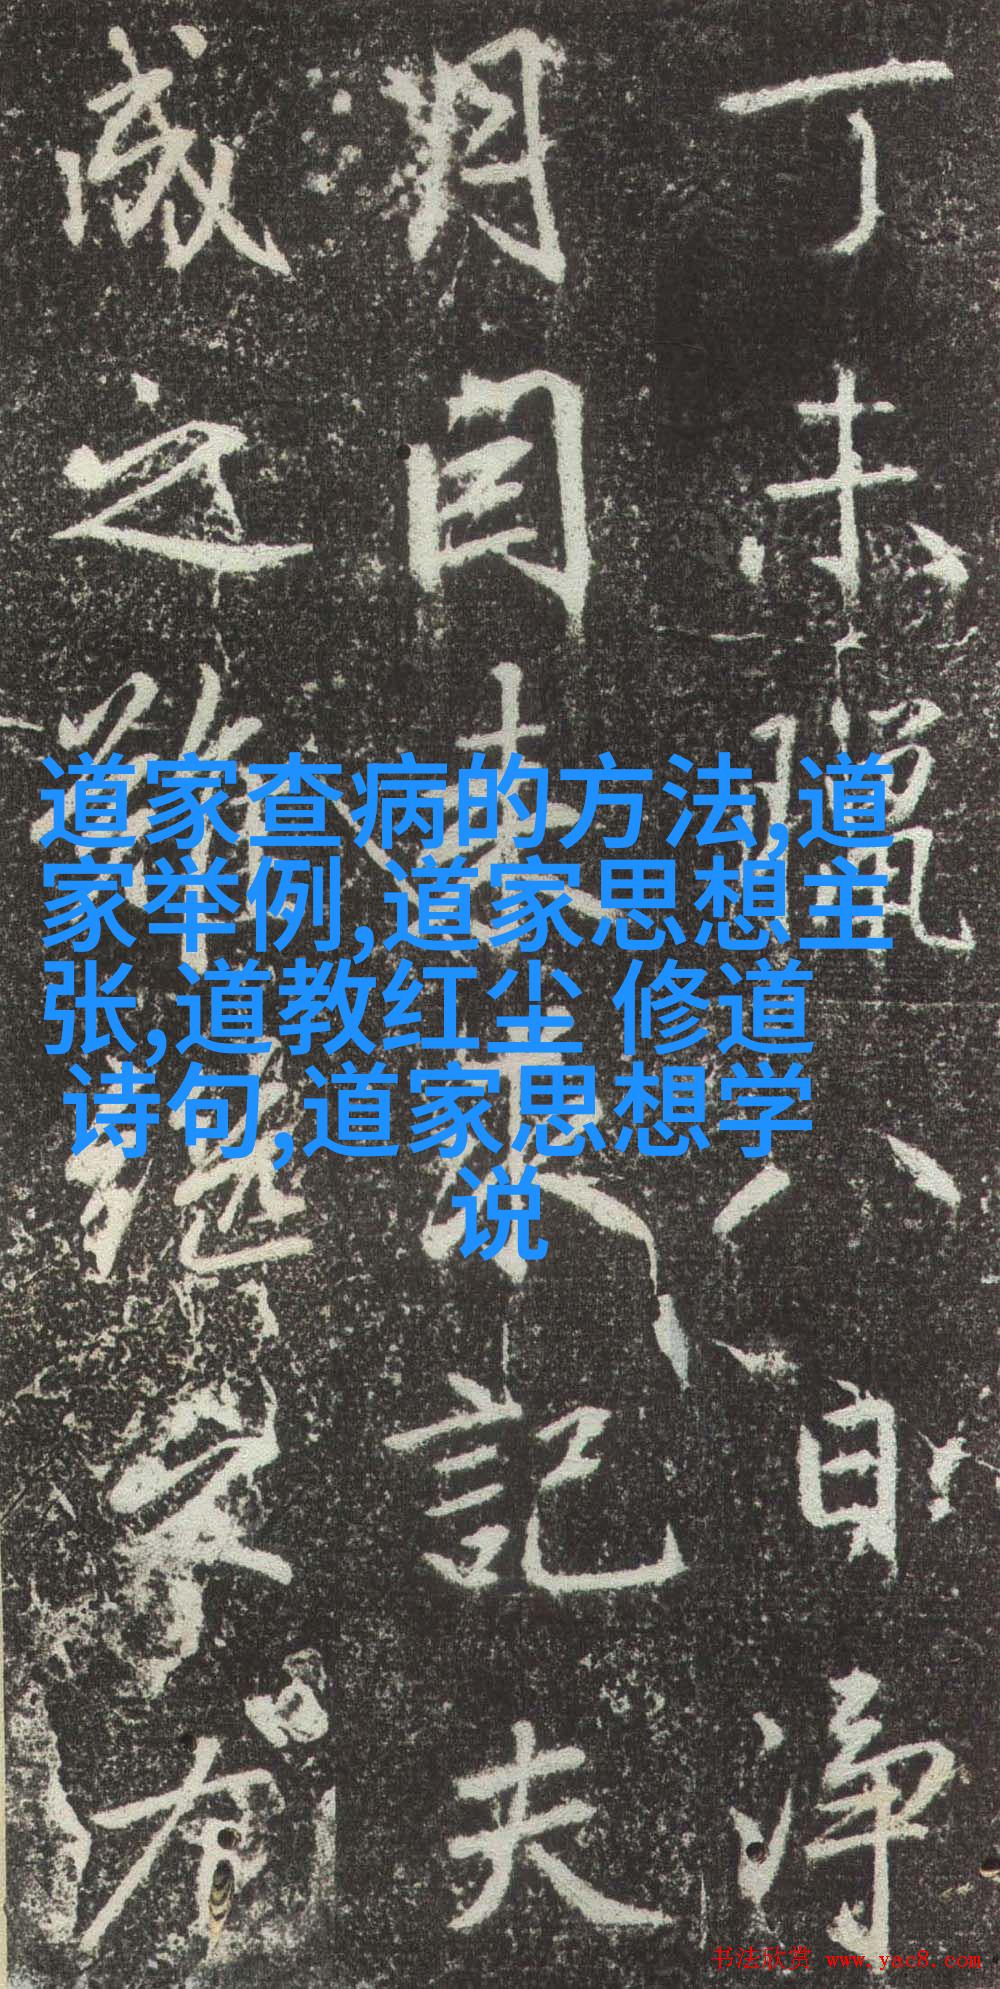 丁未臘八日淨
月目記夫
之
道家查病的方法,道
家举例,道家思想主
张,道教红尘 修道
诗句,道家思想学
说
书法欣赏 www.yac8.com